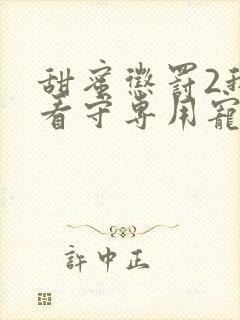 甜蜜懲罰2我
看守專用寵
許中正